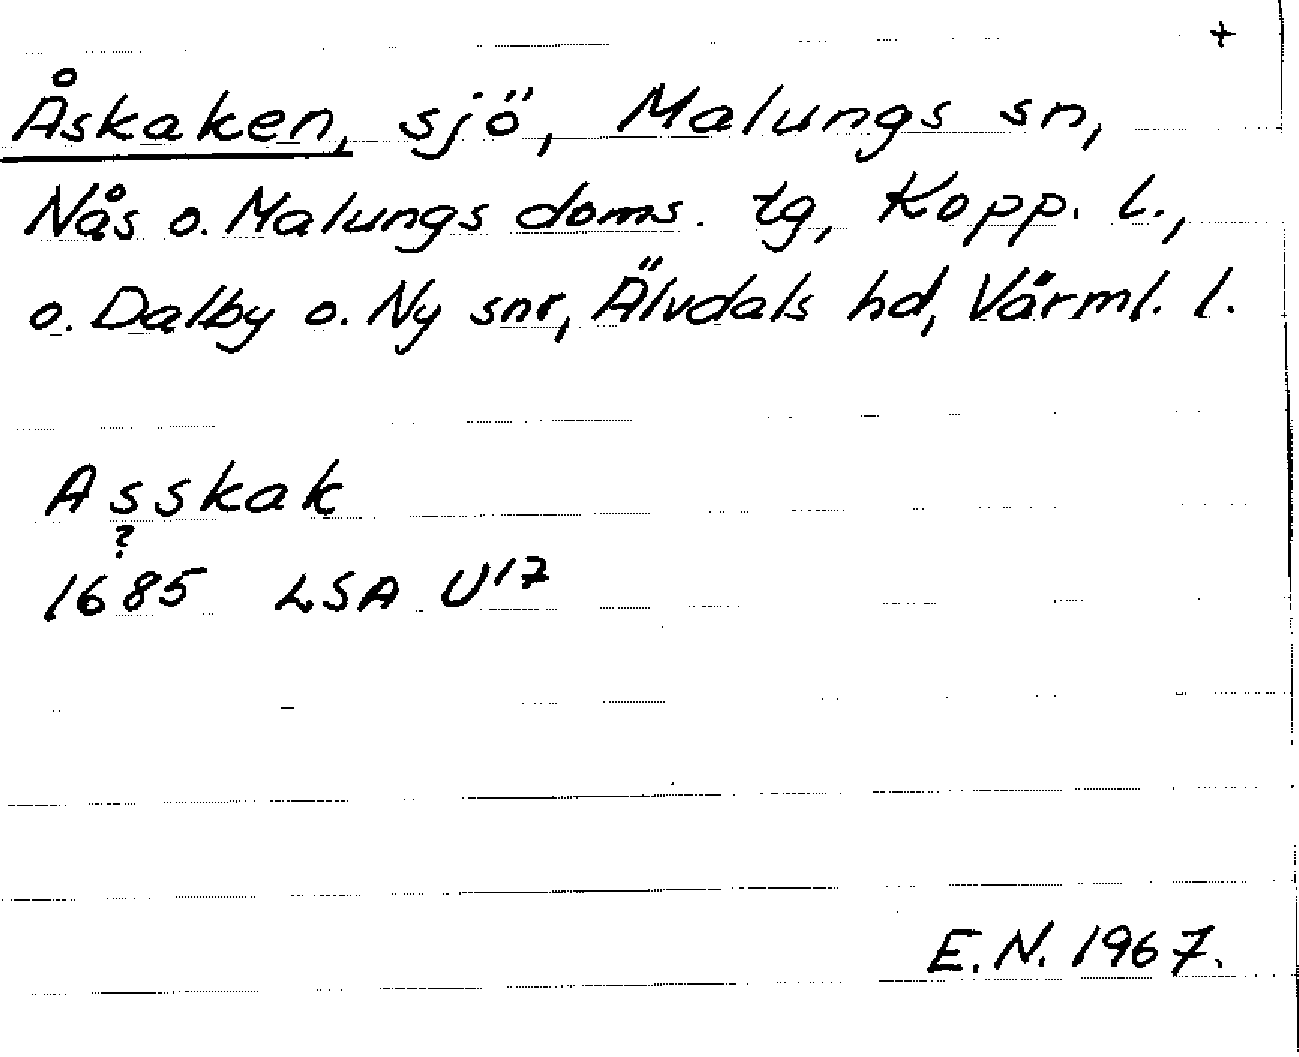 +
Åskaken, sjö, Malungs sn,
Nås o. Malungs doms. tg, Kopp. l.,
o. Dalby o. Ny snr, Älvdals hd, Värml. l.
Asskak
?
1685 LSA U17
E.N. 1967.